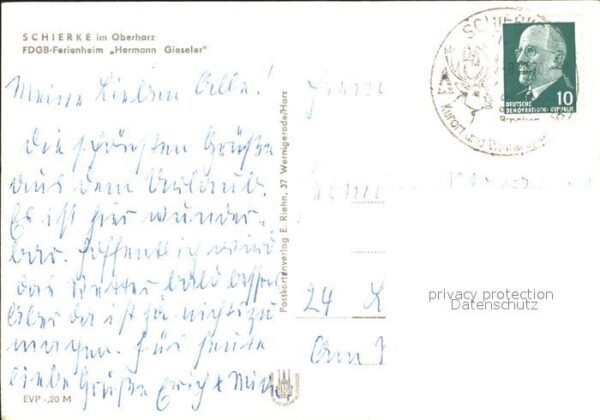 SCHIERKE im Oberharz
FDGB-Ferienheim „Hermann Gieseler"
Meine Lieben Alle!
Die schönsten Grüße
aus dem Urlaub.
Es ist hier wunder-
bar. Hoffentlich wird
das Wetter bald besser
Aber da ist ja nichts zu
machen. Für heute
liebe Grüße Erich +
EVP -,20 M
Postkartenverlag E. Riehn, 37 Wernigerode/Harz
SCHIERKE
Kurort und
DEUTSCHE
DEMOKRATISCHE REPUBLIK
10
24 L
Am
privacy protection
Datenschutz